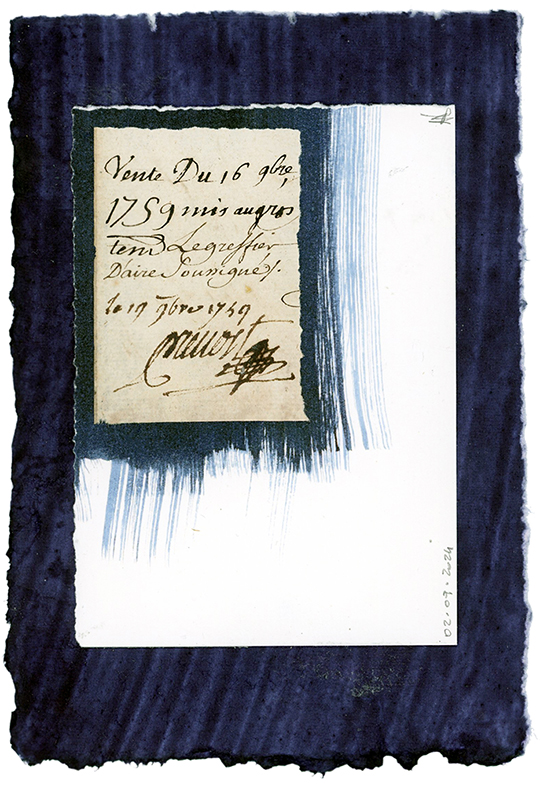 Vente Du 16 9bre
1759 mis au gros
tend Le greffier
D'aire Soussigné
le 19 9bre 1759
02.09.2024